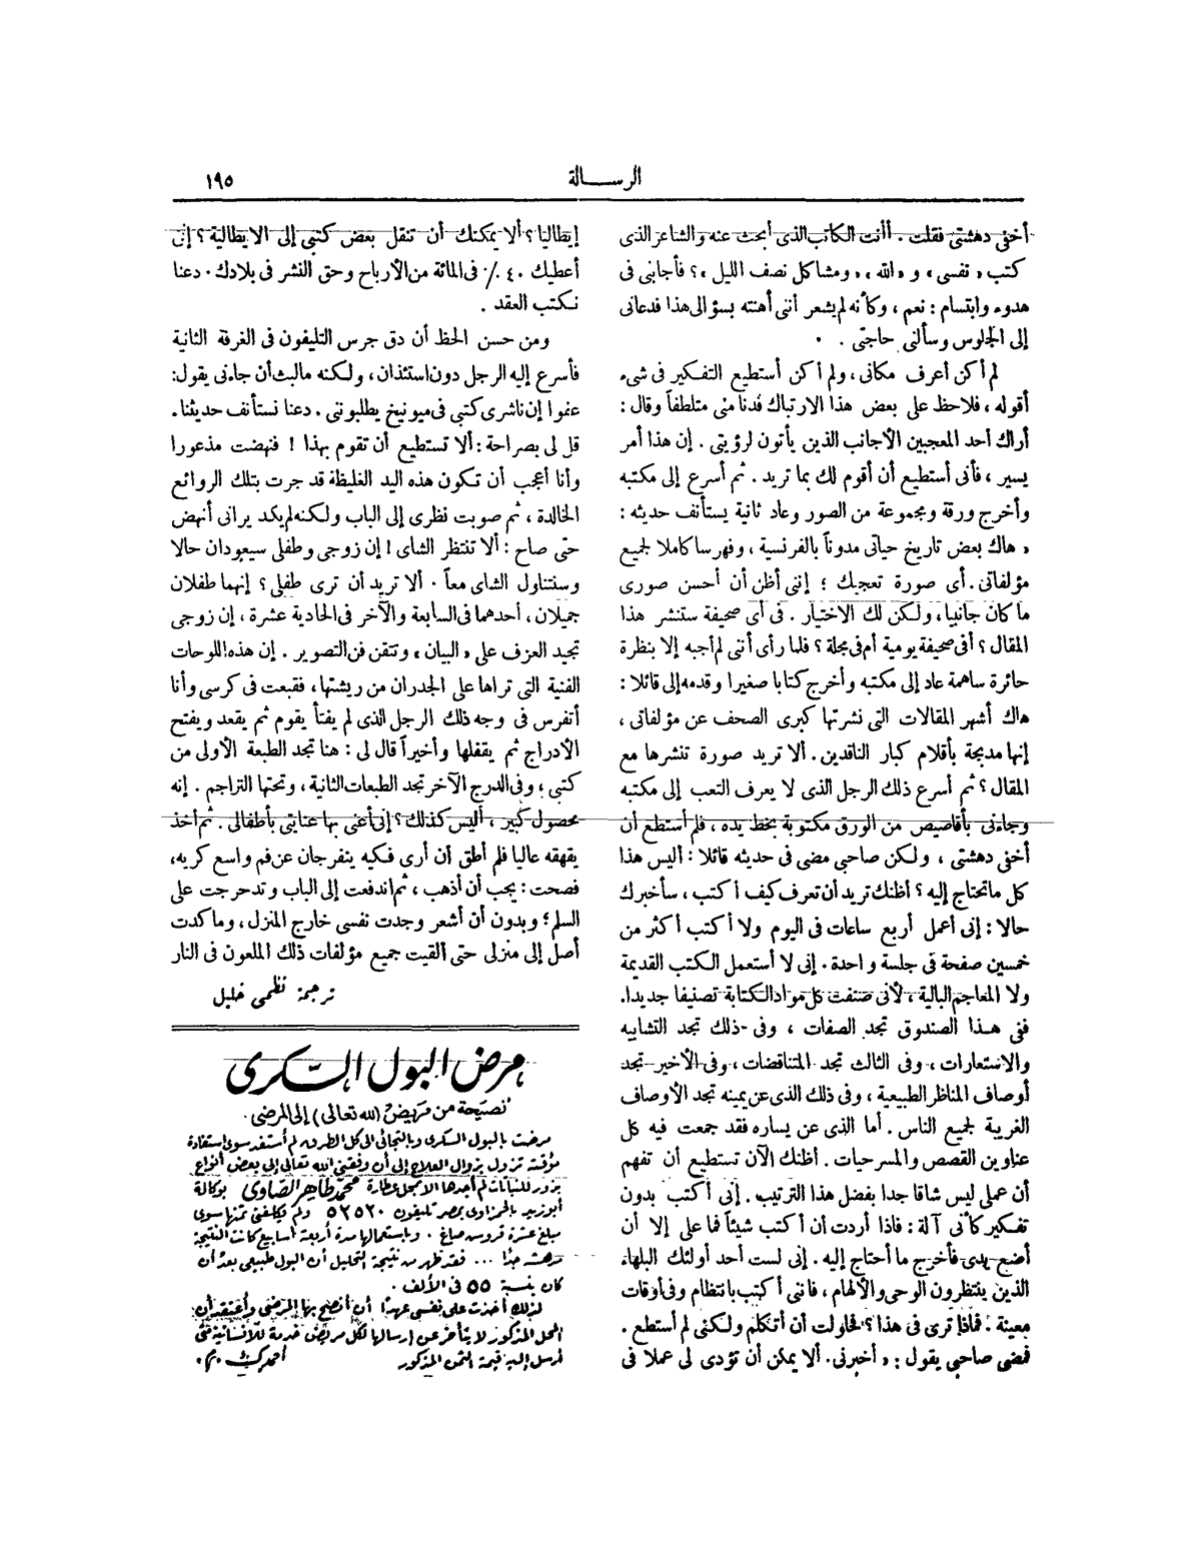 الرسالة
١٩٥
أخفي دهشتي فقلت . أأنت الكاتب الذى أبحث عنه والشاعر الذى
كتب « نفسى ، و « الله » ، « ومشاكل نصف الليل » ؟ فأجابنى فى
هدوء وابتسام : نعم ، وكأنه لم يشعر أننى أهنته بسؤالى هذا فدعانى
إلى الجلوس وسألنى حاجتى .
لم أكن أعرف مكانى ، ولم أكن أستطيع التفكير فى شىء
أقوله ، فلاحظ على بعض هذا الارتباك فدنا منى متلطفاً وقال :
أراك أحد المعجبين الأجانب الذين يأتون لرؤيتى . إن هذا أمر
يسير ، فأنى أستطيع أن أقوم لك بما تريد . ثم أسرع إلى مكتبه
وأخرج ورقة ومجموعة من الصور وعاد ثانية يستأنف حديثه :
« هاك بعض تاريخ حياتى مدوناً بالفرنسية ، وفهرسا كاملا لجميع
مؤلفاتى . أى صورة تعجبك ؛ إننى أظن أن أحسن صورى
ما كان جانبيا ، ولكن لك الاختيار . فى أى صحيفة ستنشر هذا
المقال ؟ أفى صحيفة يومية أم فى مجلة ؟ فلما رأى أننى لم أجبه إلا بنظرة
حائرة ساهمة عاد إلى مكتبه وأخرج كتابا صغيرا وقدمه إلى قائلا :
هاك أشهر المقالات التى نشرتها كبرى الصحف عن مؤلفاتى ،
إنها مدبجة بأقلام كبار الناقدين . ألا تريد صورة تنشرها مع
المقال ؟ ثم أسرع ذلك الرجل الذى لا يعرف التعب إلى مكتبه
وجاءنى بأقاصيص من الورق مكتوبة بخط يده ، فلم أستطع أن
أخفى دهشتى ، ولكن صاحبى مضى فى حديثه قائلا : أليس هذا
كل ما تحتاج إليه ؟ أظنك تريد أن تعرف كيف أكتب ، سأخبرك
حالا : إنى أعمل أربع ساعات فى اليوم ولا أكتب أكثر من
خمسين صفحة فى جلسة واحدة . إنى لا أستعمل الكتب القديمة
ولا المعاجم البالية ، لأنى صنفت كل مواد الكتابة تصنيفا جديدا .
ففى هذا الصندوق تجد الصفات ، وفى ذلك تجد التشابيه
والاستعارات ، وفى الثالث تجد المتناقضات ، وفى الأخير تجد
أوصاف المناظر الطبيعية ، وفى ذلك الذى عن يمينه تجد الأوصاف
الغريبة لجميع الناس . أما الذى عن يساره فقد جمعت فيه كل
عناوين القصص والمسرحيات . أظنك الآن تستطيع أن تفهم
أن عملى ليس شاقا جدا بفضل هذا الترتيب . إنى أكتب بدون
تفكير كأنى آلة : فاذا أردت أن أكتب شيئاً فما على إلا أن
أضع يدى فأخرج ما أحتاج إليه . إنى لست أحد أولئك البلهاء
الذين ينتظرون الوحى والالهام ، فاننى أكتب بانتظام وفى أوقات
معينة : فماذا ترى فى هذا ؟ فحاولت أن أتكلم ولكنى لم أستطع .
فمضى صاحبى يقول : « أخبرنى . ألا يمكن أن تؤدى لى عملا فى
إيطاليا ؟ ألا يمكنك أن تنقل بعض كتبى إلى الايطالية ؟ إنى
أعطيك ٤٠ ٪ فى المائة من الأرباح وحق النشر فى بلادك . دعنا
نكتب العقد .
ومن حسن الحظ أن دق جرس التليفون فى الغرفة الثانية
فأسرع إليه الرجل دون استئذان ، ولكنه مالبث أن جاءنى يقول :
عفوا إن ناشرى كتبى فى ميونيخ يطلبوننى . دعنا نستأنف حديثنا .
قل لى بصراحة : ألا تستطيع أن تقوم بهذا ! فنهضت مذعورا
وأنا أعجب أن تكون هذه اليد الغليظة قد جرت بتلك الروائع
الخالدة ، ثم صوبت نظرى إلى الباب ولكنه لم يكد يرانى أنهض
حتى صاح : ألا تنتظر الشاى ! إن زوجى وطفلى سيعودان حالا
وسنتناول الشاى معاً . ألا تريد أن ترى طفلى ؟ إنهما طفلان
جميلان ، أحدهما فى السابعة والآخر فى الحادية عشرة ، إن زوجى
تجيد العزف على « البيان » وتتقن فن التصوير . إن هذه اللوحات
الفنية التى تراها على الجدران من ريشتها ، فقبعت فى كرسى وأنا
أتفرس فى وجه ذلك الرجل الذى لم يفتأ يقوم ثم يقعد ويفتح
الأدراج ثم يقفلها وأخيراً قال لى : هنا تجد الطبعة الأولى من
كتبى ؛ وفى الدرج الآخر تجد الطبعات الثانية ، وتحتها التراجم . إنه
محصول كبير ، أليس كذلك ؟ إنى أعنى بها عنايتى بأطفالى . ثم أخذ
يقهقه عاليا فلم أطق أن أرى فكيه ينفرجان عن فم واسع كريه ،
فصحت : يجب أن أذهب ، ثم اندفعت إلى الباب وتدحرجت على
السلم ؛ وبدون أن أشعر وجدت نفسى خارج المنزل ، وما كدت
أصل إلى منزلى حتى ألقيت جميع مؤلفات ذلك الملعون فى النار
ترجمة نظمى خليل
مرض البول السكرى
نصيحة من مريض (لله تعالى) إلى المرضى .
مرضت بالبول السكرى وبالتجائى الى كل الطرق لم أستفد سوى استفادة
مؤقتة تزول بزوال العلاج إلى أن وفقنى الله تعالى إلى بعض أنواع
بزور للنباتات لم أجدها الا بمحل عطارة محمد طاهر الصاوى بوكالة
أبو زيد بالحمزاوى بمصر تليفون ٥٢٥٢٠ ولم تكلفنى ثمنها سوى
مبلغ عشرة قروش صاغ . وباستعمالها مدة أربعة أسابيع كانت النتيجة
مدهشة جدًا ... فقد ظهر من نتيجة التحليل أن البول طبيعى بعد أن
كان بنسبة ٥٥ فى الألف .
لذلك أخذت على نفسى عهدًا أن أنصح بها المرضى وأعتقد أن
المحل المذكور لا يتأخر عن إرسالها لكل مريض خدمة للانسانية متى
أرسل إليه قيمة الثمن المذكور